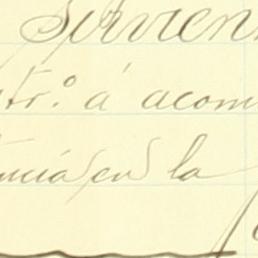 Sirvien
str.º á acom
ncia en la